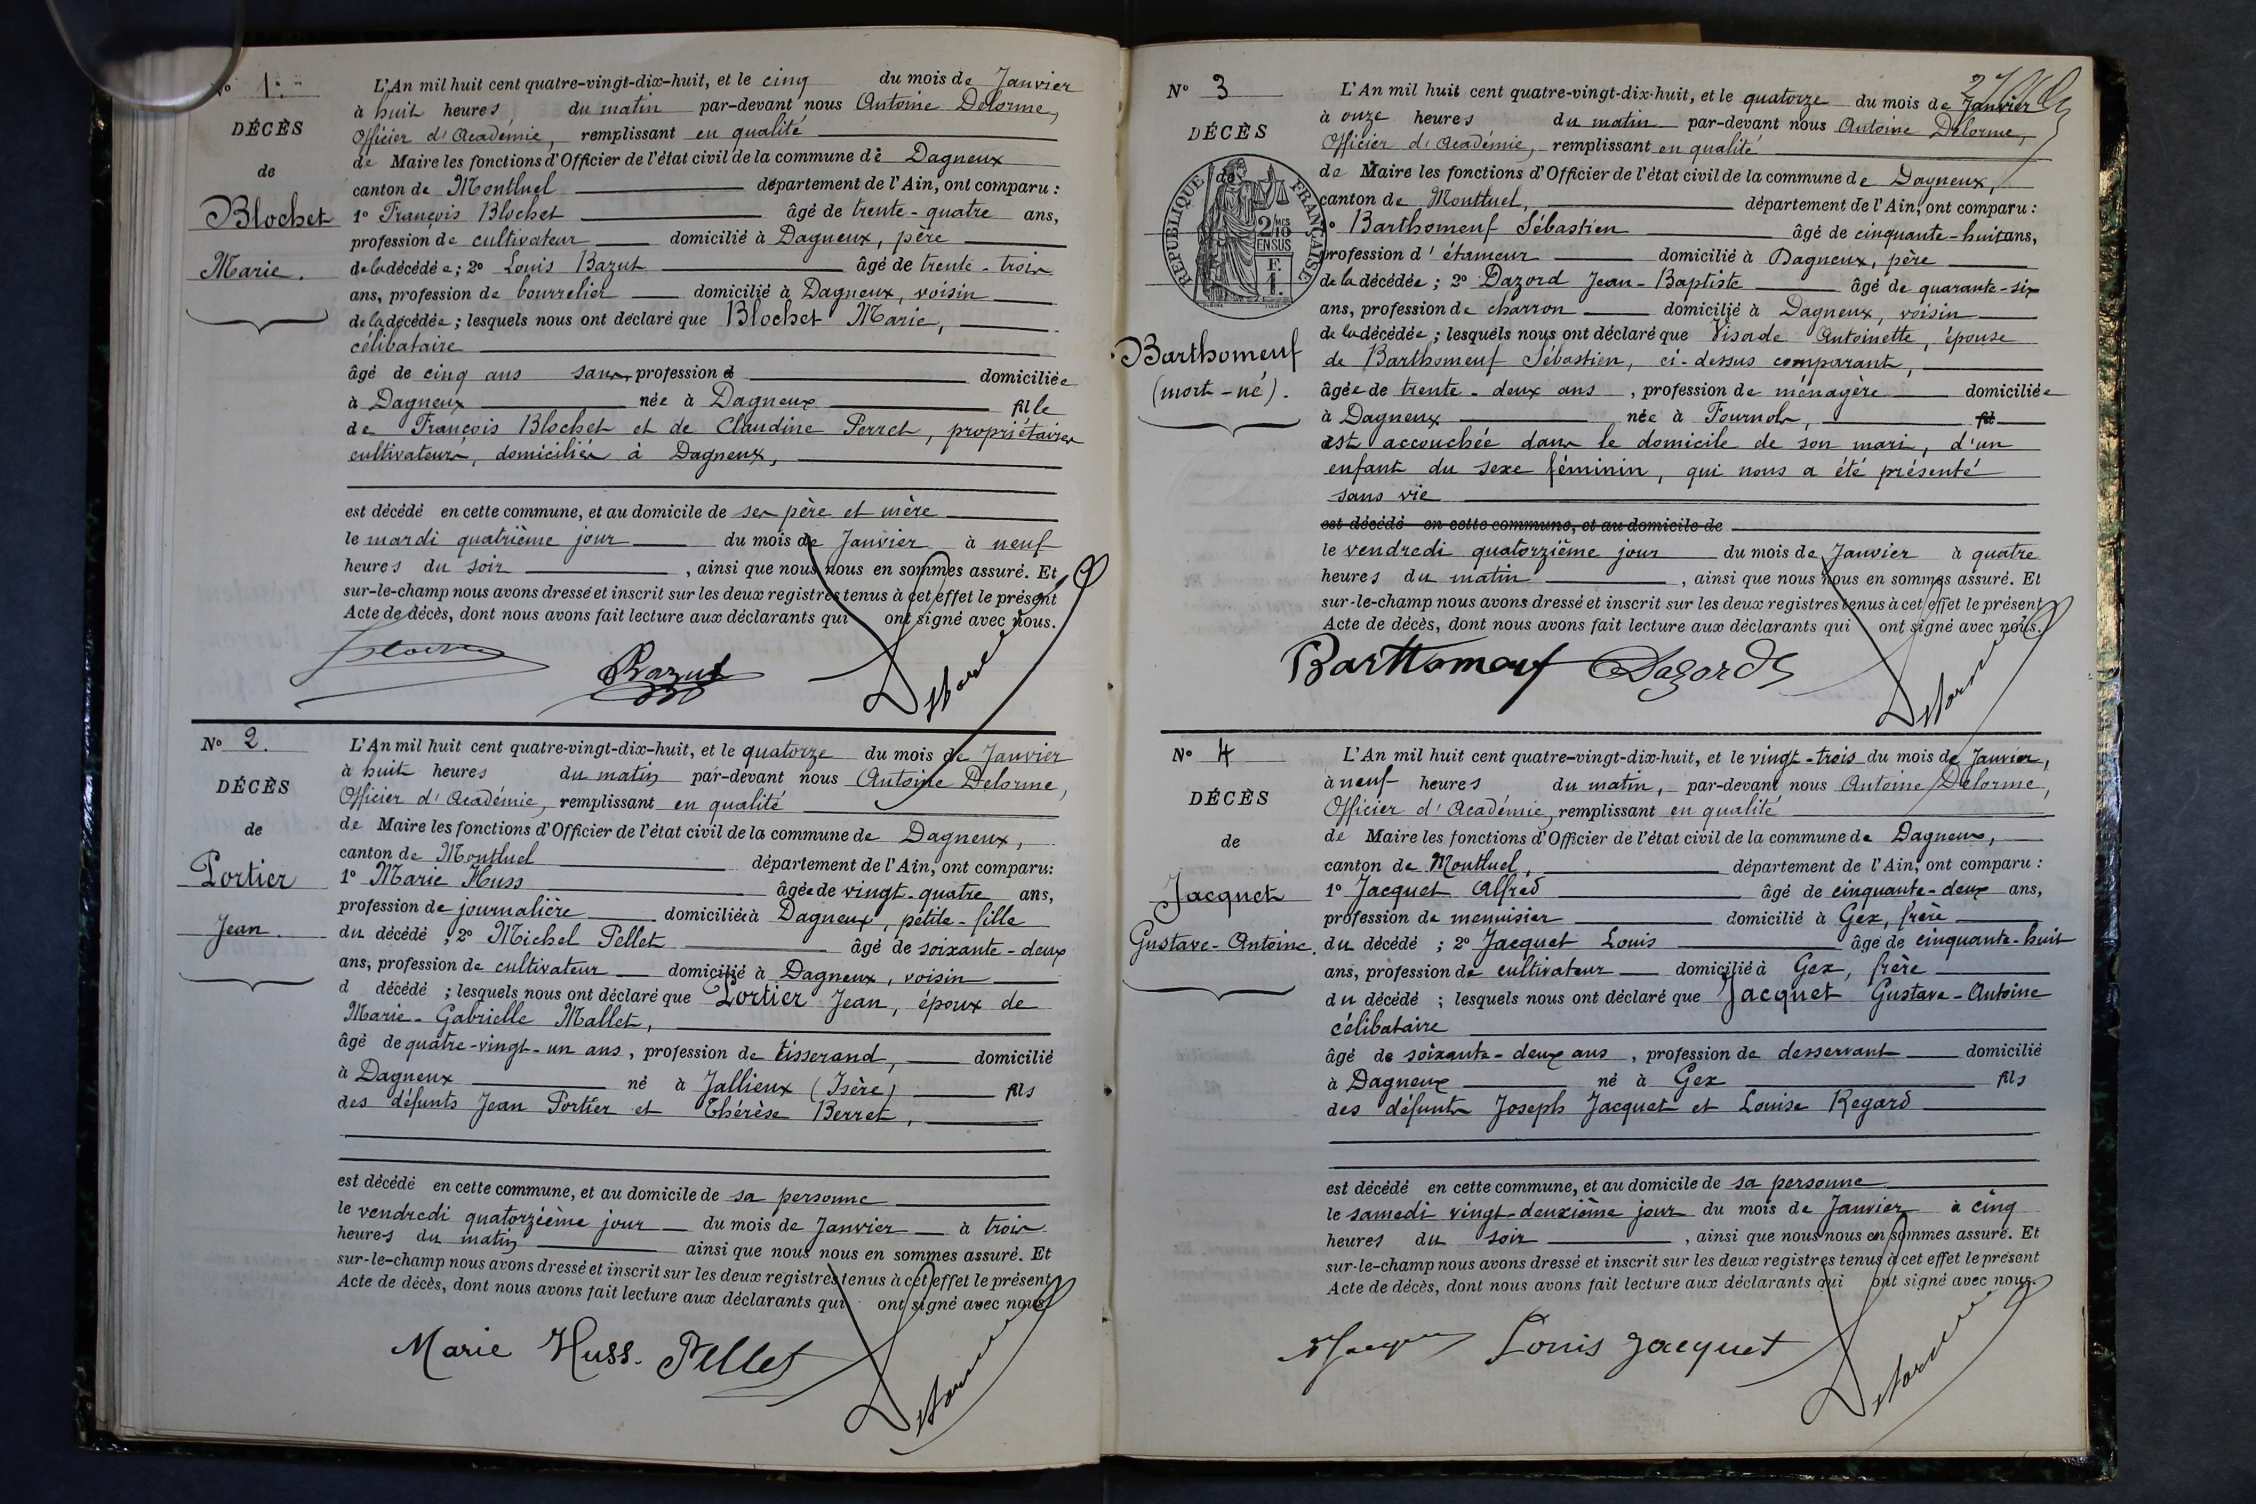 No 1.
DÉCÈS
de
Blochet
Marie.
L'An mil huit cent quatre-vingt-dix-huit, et le cinq du mois de Janvier
à huit heures du matin par-devant nous Antoine Delorme,
Officier d'Académie, remplissant en qualité
de Maire les fonctions d'Officier de l'état civil de la commune de Dagneux
canton de Montluel département de l'Ain, ont comparu :
1o François Blochet âgé de trente-quatre ans,
profession de cultivateur domicilié à Dagneux, père
de la décédée ; 2o Louis Bazut âgé de trente-trois
ans, profession de bourrelier domicilié à Dagneux, voisin
de la décédée ; lesquels nous ont déclaré que Blochet Marie,
célibataire
âgé de cinq ans sans profession d domiciliée
à Dagneux née à Dagneux fille
de François Blochet et de Claudine Perret, propriétaires
cultivateurs, domiciliés à Dagneux,
est décédé en cette commune, et au domicile de ses père et mère
le mardi quatrième jour du mois de Janvier à neuf
heures du soir , ainsi que nous nous en sommes assuré. Et
sur-le-champ nous avons dressé et inscrit sur les deux registres tenus à cet effet le présent
Acte de décès, dont nous avons fait lecture aux déclarants qui ont signé avec nous.
Bazut Delorme
No 2.
DÉCÈS
de
Portier
Jean.
L'An mil huit cent quatre-vingt-dix-huit, et le quatorze du mois de Janvier
à huit heures du matin par-devant nous Antoine Delorme,
Officier d'Académie, remplissant en qualité
de Maire les fonctions d'Officier de l'état civil de la commune de Dagneux,
canton de Montluel département de l'Ain, ont comparu :
1o Marie Huss âgée de vingt-quatre ans,
profession de journalière domiciliée à Dagneux, petite-fille
du décédé ; 2o Michel Pellet âgé de soixante-deux
ans, profession de cultivateur domicilié à Dagneux, voisin
d décédé ; lesquels nous ont déclaré que Portier Jean, époux de
Marie-Gabrielle Mallet,
âgé de quatre-vingt-un ans, profession de tisserand, domicilié
à Dagneux né à Jallieux (Isère) fils
des défunts Jean Portier et Thérèse Berret,
est décédé en cette commune, et au domicile de sa personne
le vendredi quatorzième jour du mois de Janvier à trois
heures du matin ainsi que nous nous en sommes assuré. Et
sur-le-champ nous avons dressé et inscrit sur les deux registres tenus à cet effet le présent
Acte de décès, dont nous avons fait lecture aux déclarants qui ont signé avec nous.
Marie Huss. Pellet Delorme
No 3
DÉCÈS
de
RÉPUBLIQUE FRANÇAISE
2/10 MES
EN SUS
F.
1.
Barthomeuf
(mort-né).
L'An mil huit cent quatre-vingt-dix-huit, et le quatorze du mois de Janvier
à onze heures du matin par-devant nous Antoine Delorme,
Officier d'Académie, remplissant en qualité
de Maire les fonctions d'Officier de l'état civil de la commune de Dagneux,
canton de Montluel, département de l'Ain, ont comparu :
1o Barthomeuf Sébastien âgé de cinquante-huit ans,
profession d'étameur domicilié à Dagneux, père
de la décédée ; 2o Dazord Jean-Baptiste âgé de quarante-six
ans, profession de charron domicilié à Dagneux, voisin
de la décédée ; lesquels nous ont déclaré que Visade Antoinette, épouse
de Barthomeuf Sébastien, ci-dessus comparant,
âgée de trente-deux ans, profession de ménagère domiciliée
à Dagneux née à Fournols, fil
est accouchée dans le domicile de son mari, d'un
enfant du sexe féminin, qui nous a été présenté
sans vie
est décédé en cette commune, et au domicile de
le vendredi quatorzième jour du mois de Janvier à quatre
heures du matin , ainsi que nous nous en sommes assuré. Et
sur-le-champ nous avons dressé et inscrit sur les deux registres tenus à cet effet le présent
Acte de décès, dont nous avons fait lecture aux déclarants qui ont signé avec nous.
Barthomeuf Dazord Delorme
No 4
DÉCÈS
de
Jacquet
Gustave-Antoine.
L'An mil huit cent quatre-vingt-dix-huit, et le vingt-trois du mois de Janvier,
à neuf heures du matin, par-devant nous Antoine Delorme,
Officier d'Académie, remplissant en qualité
de Maire les fonctions d'Officier de l'état civil de la commune de Dagneux,
canton de Montluel, département de l'Ain, ont comparu :
1o Jacquet Alfred âgé de cinquante-deux ans,
profession de menuisier domicilié à Gex, frère
du décédé ; 2o Jacquet Louis âgé de cinquante-huit
ans, profession de cultivateur domicilié à Gex, frère
du décédé ; lesquels nous ont déclaré que Jacquet Gustave-Antoine
célibataire
âgé de soixante-deux ans, profession de desservant domicilié
à Dagneux né à Gex fils
des défunts Joseph Jacquet et Louise Regard
est décédé en cette commune, et au domicile de sa personne
le samedi vingt-deuxième jour du mois de Janvier à cinq
heures du soir , ainsi que nous nous en sommes assuré. Et
sur-le-champ nous avons dressé et inscrit sur les deux registres tenus à cet effet le présent
Acte de décès, dont nous avons fait lecture aux déclarants qui ont signé avec nous.
Louis Jacquet Delorme